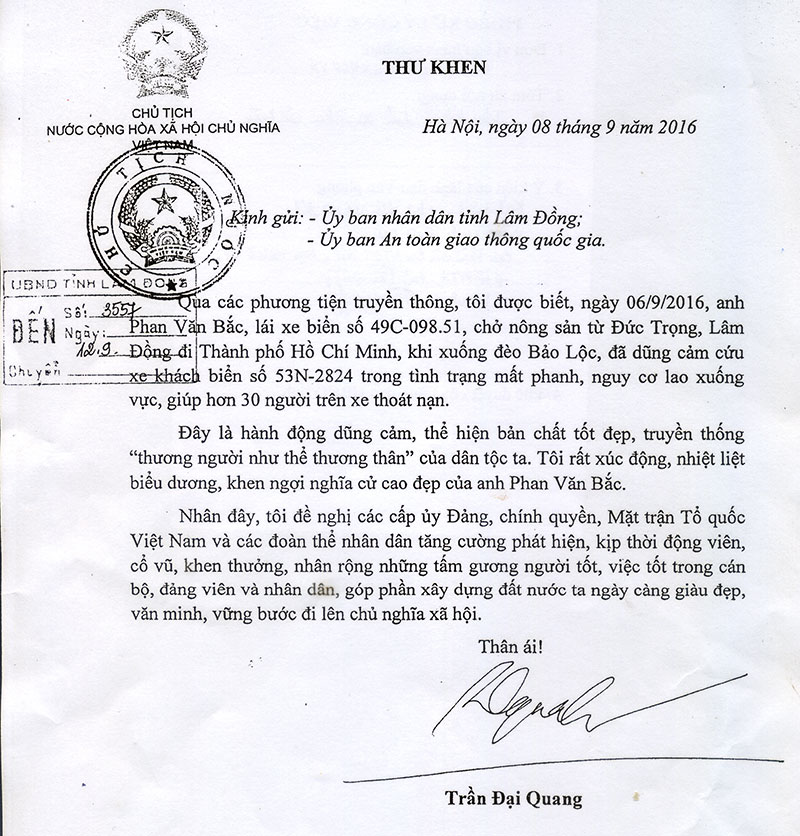 THƯ KHEN
CHỦ TỊCH
NƯỚC CỘNG HÒA XÃ HỘI CHỦ NGHĨA
VIỆT NAM
Hà Nội, ngày 08 tháng 9 năm 2016
CHỦ TỊCH NƯỚC
Kính gửi: - Ủy ban nhân dân tỉnh Lâm Đồng;
- Ủy ban An toàn giao thông quốc gia.
UBND TỈNH LÂM ĐỒNG
ĐẾN
Số: 3557
Ngày: 12.9.
Chuyển
Qua các phương tiện truyền thông, tôi được biết, ngày 06/9/2016, anh
Phan Văn Bắc, lái xe biển số 49C-098.51, chở nông sản từ Đức Trọng, Lâm
Đồng đi Thành phố Hồ Chí Minh, khi xuống đèo Bảo Lộc, đã dũng cảm cứu
xe khách biển số 53N-2824 trong tình trạng mất phanh, nguy cơ lao xuống
vực, giúp hơn 30 người trên xe thoát nạn.
Đây là hành động dũng cảm, thể hiện bản chất tốt đẹp, truyền thống
“thương người như thể thương thân” của dân tộc ta. Tôi rất xúc động, nhiệt liệt
biểu dương, khen ngợi nghĩa cử cao đẹp của anh Phan Văn Bắc.
Nhân đây, tôi đề nghị các cấp ủy Đảng, chính quyền, Mặt trận Tổ quốc
Việt Nam và các đoàn thể nhân dân tăng cường phát hiện, kịp thời động viên,
cổ vũ, khen thưởng, nhân rộng những tấm gương người tốt, việc tốt trong cán
bộ, đảng viên và nhân dân, góp phần xây dựng đất nước ta ngày càng giàu đẹp,
văn minh, vững bước đi lên chủ nghĩa xã hội.
Thân ái!
Trần Đại Quang